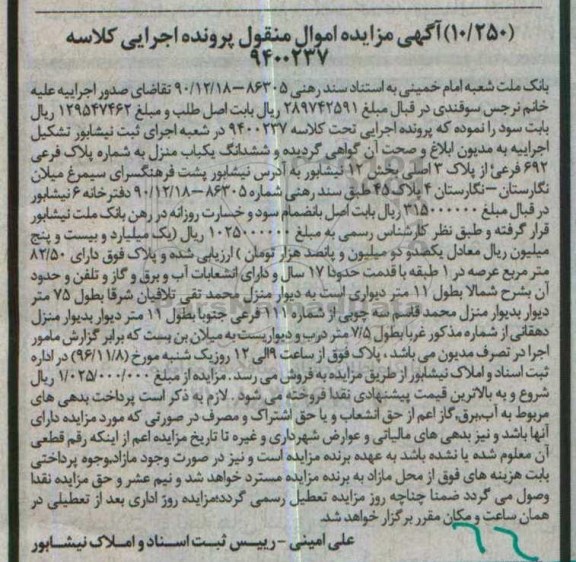 (۱۰/۲۵۰) آگهی مزایده اموال منقول پرونده اجرایی کلاسه
۹۴۰۰۲۳۷
بانک ملت شعبه امام خمینی به استناد سند رهنی ۸۶۳۰۵–۹۰/۱۲/۱۸ تقاضای صدور اجراییه علیه
خانم نرجس سوقندی در قبال مبلغ ۲۸۹۷۴۲۵۹۱ ریال بابت اصل طلب و مبلغ ۱۲۹۵۴۷۴۶۲ ریال
بابت سود را نموده که پرونده اجرایی تحت کلاسه ۹۴۰۰۲۳۷ در شعبه اجرای ثبت نیشابور تشکیل
اجراییه به مدیون ابلاغ و صحت آن گواهی گردیده و ششدانگ یکباب منزل به شماره پلاک فرعی
۶۹۲ فرعی؛ از پلاک ۳ اصلی بخش ۱۲ نیشابور به آدرس نیشابور پشت فرهنگسرای سیمرغ میلان
نگارستان – نگارستان ۴ پلاک ۴۵ طبق سند رهنی شماره ۸۶۳۰۵–۹۰/۱۲/۱۸ دفترخانه ۶ نیشابور
در قبال مبلغ ۳۱۵۰۰۰۰۰۰ ریال بابت اصل بانضمام سود و خسارت روزانه در رهن بانک ملت نیشابور
قرار گرفته و طبق نظر کارشناس رسمی به مبلغ ۱۰۲۵۰۰۰۰۰۰ ریال (یک میلیارد و بیست و پنج
میلیون ریال معادل یکصدو دو میلیون و پانصد هزار تومان) ارزیابی شده و پلاک فوق دارای ۸۲/۵۰
متر مربع عرصه در ۱ طبقه با قدمت حدودا ۱۷ سال و دارای انشعابات آب و برق و گاز و تلفن و حدود
آن بشرح شمالا بطول ۱۱ متر دیواری است به دیوار منزل محمد تقی تلافیان شرقا بطول ۷۵ متر
دیوار بدیوار منزل محمد قاسم سه چوبی از شماره ۱۱۱ فرعی جنوبا بطول ۱۱ متر دیوار بدیوار منزل
دهقانی از شماره مذکور غربا بطول ۷/۵ متر درب و دیواریست به میلان بن بست که برابر گزارش مامور
اجرا در تصرف مدیون می باشد، پلاک فوق از ساعت ۹الی ۱۲ روز یک شنبه مورخ (۹۶/۱۱/۸) در اداره
ثبت اسناد و املاک نیشابور از طریق مزایده به فروش می رسد. مزایده از مبلغ ۱/۰۲۵/۰۰۰/۰۰۰ ریال
شروع و به بالاترین قیمت پیشنهادی نقدا فروخته می شود. لازم به ذکر است پرداخت بدهی های
مربوط به آب،برق،گاز اعم از حق انشعاب و یا حق اشتراک و مصرف در صورتی که مورد مزایده دارای
آنها باشد و نیز بدهی های مالیاتی و عوارض شهرداری و غیره تا تاریخ مزایده اعم از اینکه رقم قطعی
آن معلوم شده یا نشده باشد به عهده برنده مزایده است و نیز در صورت وجود مازاد،وجوه پرداختی
بابت هزینه های فوق از محل مازاد به برنده مزایده مسترد خواهد شد و نیم عشر و حق مزایده نقدا
وصول می گردد ضمنا چناچه روز مزایده تعطیل رسمی گردد،مزایده روز اداری بعد از تعطیلی در
همان ساعت و مکان مقرر برگزار خواهد شد.
علی امینی – رییس ثبت اسناد و املاک نیشابور